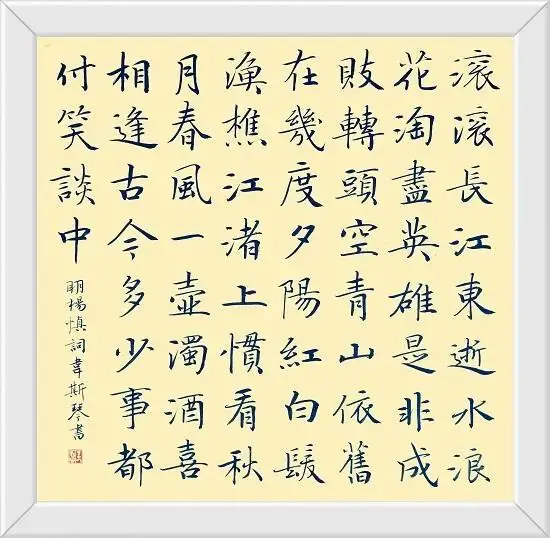 滚滚長江東逝水浪
花淘盡英雄是非成
敗轉頭空青山依舊
在幾度夕陽紅白髮
漁樵江渚上慣看秋
月春風一壺濁酒喜
相逢古今多少事都
付笑談中
明楊慎詞韋斯琴書